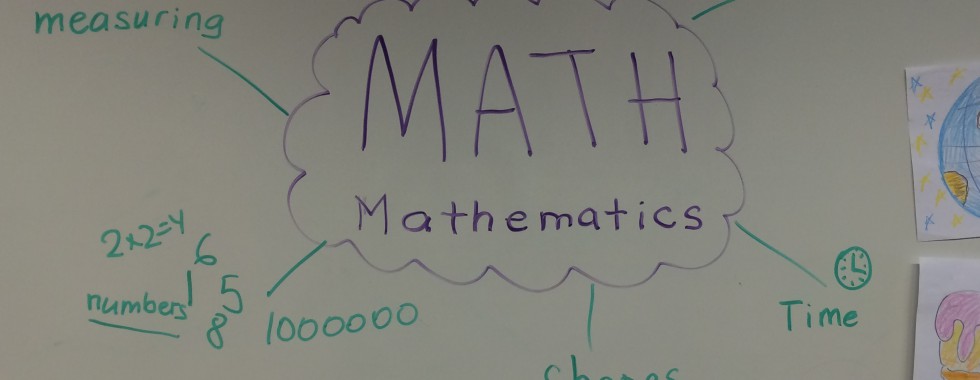 measuring
MATH
Mathematics
2×2=4
6
1 5
numbers
8 1000000
Time